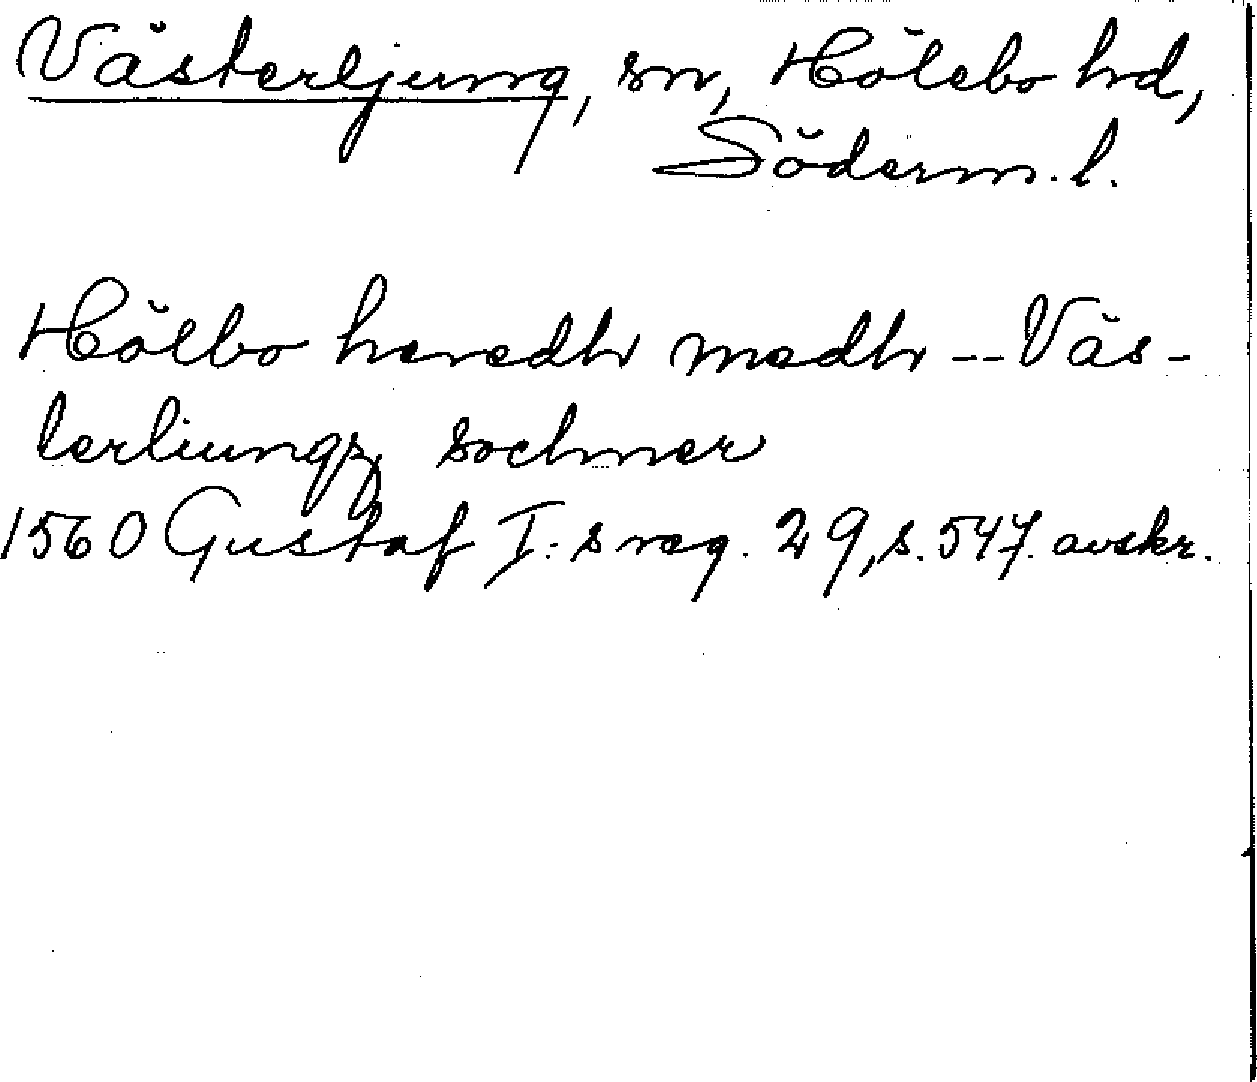 Västerljung, sn, Hölebo hd,
Söderm.l.
Hölbo heredh medh -- Väs-
terliungz sochner
1560 Gustaf I:s reg. 29, s. 547. avskr.